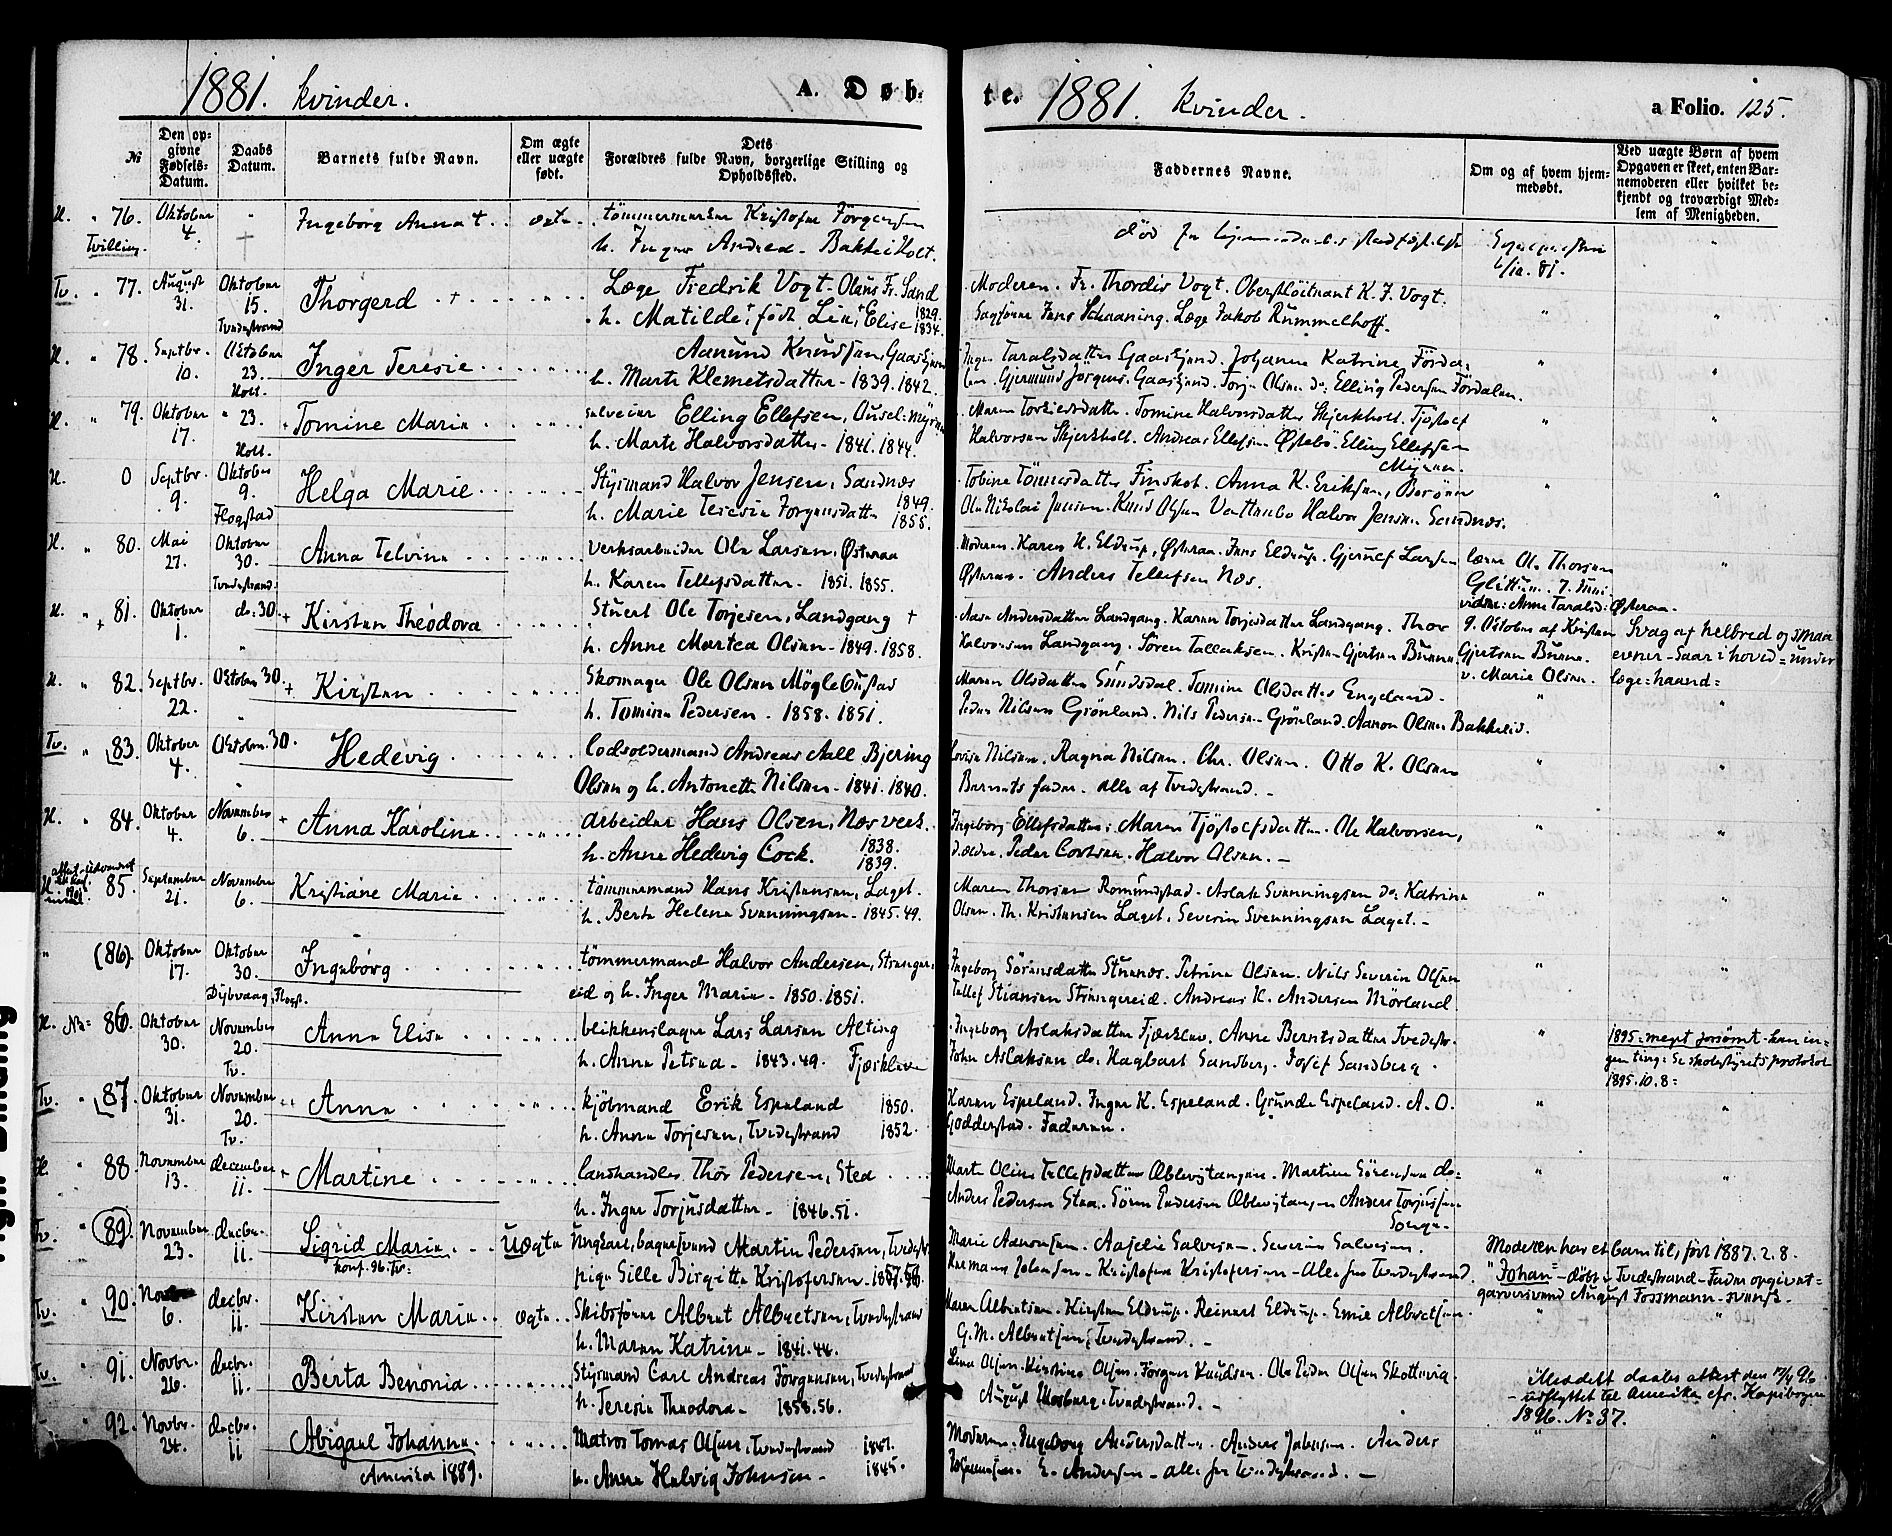 1881. kvinder.
A. Døb-
te.
1881. kvinder.
a Folio. 125.
№
Den op-
givne
Fødsels-
Datum.
Daabs
Datum.
Barnets fulde Navn.
Om ægte
eller uægte
født.
Dets
Forældres fulde Navn, borgerlige Stilling og
Opholdssted.
Faddernes Navne.
Om og af hvem hjem-
medøbt.
Ved uægte Børn af hvem
Opgaven er skeet, enten Bar-
nemoderen eller hvilket be-
kjendt og troværdigt Med-
lem af Menigheden.
H. " 76. Oktober 4. Ingeborg Anna + ægte
Tvilling.
tømmermand Kristofer Jörgensen
h. Inger Andrea - Bakke i Holt.
død
6/10. 81.
Tv. " 77. August 31. Oktober 15. Tvedestrand Thorgerd
Læge Fredrik Vogt - Olaus Fr. Sand 1829.
h. Matilde, født Lin, Elise 1834.
Moderen. Fr. Thordis Vogt. Oberstlöitnant K. J. Vogt.
Sagförer Jens Schaaning. Læge Jakob Rummelhoff.
H. " 78. Septbr. 10. Oktober 23. Holt. Inger Teresie
Aanund Knudsen, Gaaskjenn
h. Marte Klemetsdatter - 1839. 1842.
Inger Taralsdatter Gaaskjend. Johanne Katrine Förda-
len. Gjermund Jörgens. Gaaskjend. Torje Olsen do. Elling Pedersen Fördalen.
H. " 79. Oktober 17. " 23. Holt. Tomine Marie
selveier Elling Ellefsen, Ausel-Myren
h. Marte Halvorsdatter - 1841. 1844.
Maren Torkjelsdatter. Tomine Halvorsdatter Skjerkholt. Tjöstolf
Halvorsen Skjerkholt. Andreas Ellefsen Østebö. Elling Ellefsen
Myren.
H. 0 Septbr. 9. Oktober 9. Flogstad Helga Marie
Styrmand Halvor Jensen, Sandnæs 1849.
h. Marie Teresie Jörgensdatter 1855.
Tobine Tönnesdatter Finskot. Anna K. Eriksen, Borönen
Ole Nikolai Jensen. Knud Olsen Vattenbo Halvor Jensen Sandnæs.
H. " 80. Mai 27. Oktober 30. Tvedestrand Anna Telvine
Verksarbeider Ole Larsen, Østeraa
h. Karen Tellefsdatter - 1851. 1855.
Moderen. Karen H. Eldrup, Østeraa. Jens Eldrup. Gjerulf Larsen
Østeraa. Anders Tellefsen Næs.
lærer Ol. Thorsen
7. Juni
vidne: Anne Taralsd: Østeraa.
H. " 81. Oktober 1. do: 30. Kirsten Theodora
Stuert Ole Torjesen, Landgang +
h. Anne Martea Olsen - 1849. 1858.
Aase Andersdatter Landgang. Karen Torjesdatter Landgang. Thor
Halvorsen Landgang. Sören Tallaksen. Kristen Gjertsen Bunne
9. Oktober af Kristen
Gjertsen Bunne.
v. Marie Olsen.
Svag af helbred og smaa
evner - Saar i hoved = under
læge-haand =
H. " 82. Septbr. 22. Oktober 30. Kirsten
Skomager Ole Olsen Möglebustad
h. Tomine Pedersen - 1858. 1851.
Maren Olsdatter Sundsdal. Tomine Olsdatter Engeland.
Peder Nilsen Grönland. Nils Pedersen Grönland. Aanon Olsen Bakkelid.
Tv. " 83. Oktober 4. Oktober 30. Hedevig
lodsoldermand Andreas Aall Bjering
Olsen og h. Antonette Nilsen - 1841. 1840.
Lovise Nilsen. Ragna Nilsen. Chr. Olsen. Otto K. Olsen
Barnets fader. alle af Tvedestrand. -
H. " 84. Oktober 4. November 6. Anna Karoline
arbeider Hans Olsen, Næs verk. 1838.
h. Anne Hedevig Cock. 1839.
Ingeborg Ellefsdatter. Maren Tjöstolfsdatter. Ole Halvorsen,
d.ældre. Peder Corlsen. Halvor Olsen. -
H. 85. September 21. November 6. Kristiane Marie
tømmermand Hans Kristensen, Laget.
h. Berte Helene Svenningsen - 1845. 49.
Maren Thorsen Romundstad. Aslak Svenningsen do. Katrine
Olsen. Th. Kristensen Laget. Severin Svenningsen Laget. -
" (86). Oktober 17. Oktober 30. Dybvaag, Flogst. Ingeborg
tömmermand Halvor Andersen, Strenger-
eid og h. Inger Marie - 1850. 1851.
Ingeborg Sörensdatter Strenæs. Petrine Olsen. Nils Severin Olsen
Tellef Stiansen Strengereid. Andreas K. Andersen Mörland.
H. No= 86. Oktober 30. November 20. Tv. Anna Elise
blikkenslager Lars Larsen Alting
h. Anne Petrea - 1843. 49. Fjærkleve
Ingeborg Aslaksdatter Fjærklev. Anne Berntsdatter Tvedestr.
John Aslaksen do. Hagbart Sandberg. Josef Sandberg.
1895 = meget forsømt - kan in-
gen ting: Se skolestyrets protokol
1895. 10. 8 =
Tv. " 87. Oktober 31. November 20. Tv. Anna
kjöbmand Erik Espeland 1850.
h. Anna Torjesen, Tvedestrand 1852.
Karen Espeland. Inger K. Espeland. Grunde Espeland. A. O.
Godderstad. Faderen.
H. " 88. November 13. december 11. Martine
landhandler Thor Pedersen, Sted
h. Inger Torjusdatter - 1846. 51.
Marte Oline Tellefsdatter Æblevigtangen. Martine Sörensen do-
Anders Pedersen Staa. Sören Pedersen Æblevigtangen Anders Torjussen
Songe.
Tv. " 89. November 23. decbr. 11. Sigrid Marie uægte
konf. 96. Tv=
Ungkarl, bagersvend Martin Pedersen, Tvedestr.
pige Gille Birgitte Kristofersen - 1857. 56.
Marie Aanonsen. Aaselie Salvesen. Severin Salvesen.
Hermans Johnsen. Kristofer Kristofersen - Alle fra Tvedestrand.
Moderen har et barn til, født 1887. 2. 8.
"Johan" - døbt i Tvedestrand - Fader opgivet =
garversvend August Fossmann - svensk -
Tv. " 90. 6. decbr. 11. Kirsten Marie ægte
Skibsförer Albert Albretsen, Tvedestrand
h. Maren Katrine - 1841. 44.
Maren Albretsen. Kirsten Eldrup. Reinert Eldrup. Emil Albretsen
G. M. Albretsen, Tvedestrand. -
Tv. " 91. Novbr. 26. decbr. 11. Berta Benonia
Styrmand Carl Andreas Jörgensen, Tvedestrand
h. Teresie Theodora - 1858. 56.
Lina Olsen. Kirstine Olsen. Jörgen Knudsen. Ole Peder Olsen Skottevig.
August Tvedestrand. -
Meddelt daabs attest den 17/4 96
- udflyttet til Amerika cfr. Kopibogen
1896. No 37.
" 92. Novbr. 24. decbr. 11 Abigael Johanne
Amerika 1889.
Matros Tomas Olsen, Tvedestrand 1851.
h. Anne Helvig Johnsen - 1845.
Moderen. Ingeborg Andersdatter. Anders Jakobsen. Anders
E. Andersen - alle fra Tvedestrand. -